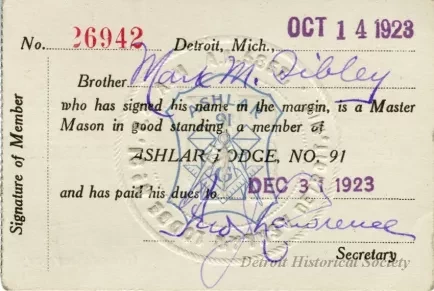 No. 26942 Detroit, Mich., OCT 14 1923
Brother Mark M. Sibley
who has signed his name in the margin, is a Master
Mason in good standing, a member of
ASHLAR LODGE, NO. 91
and has paid his dues to DEC 31 1923
Fred Lawrence
Secretary
Signature of Member
ASHLAR
91
Detroit Historical Society